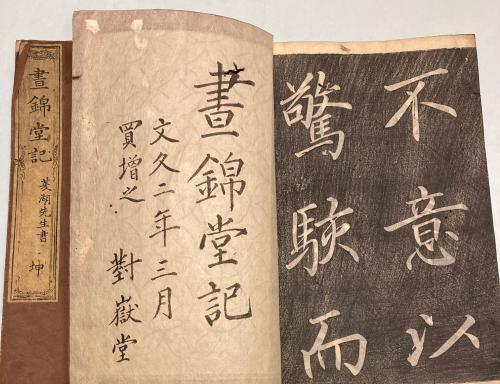 不意以
驚駭而
晝錦堂記
文久二年三月
買增之 對嶽堂
晝錦堂記
菱湖先生書
坤